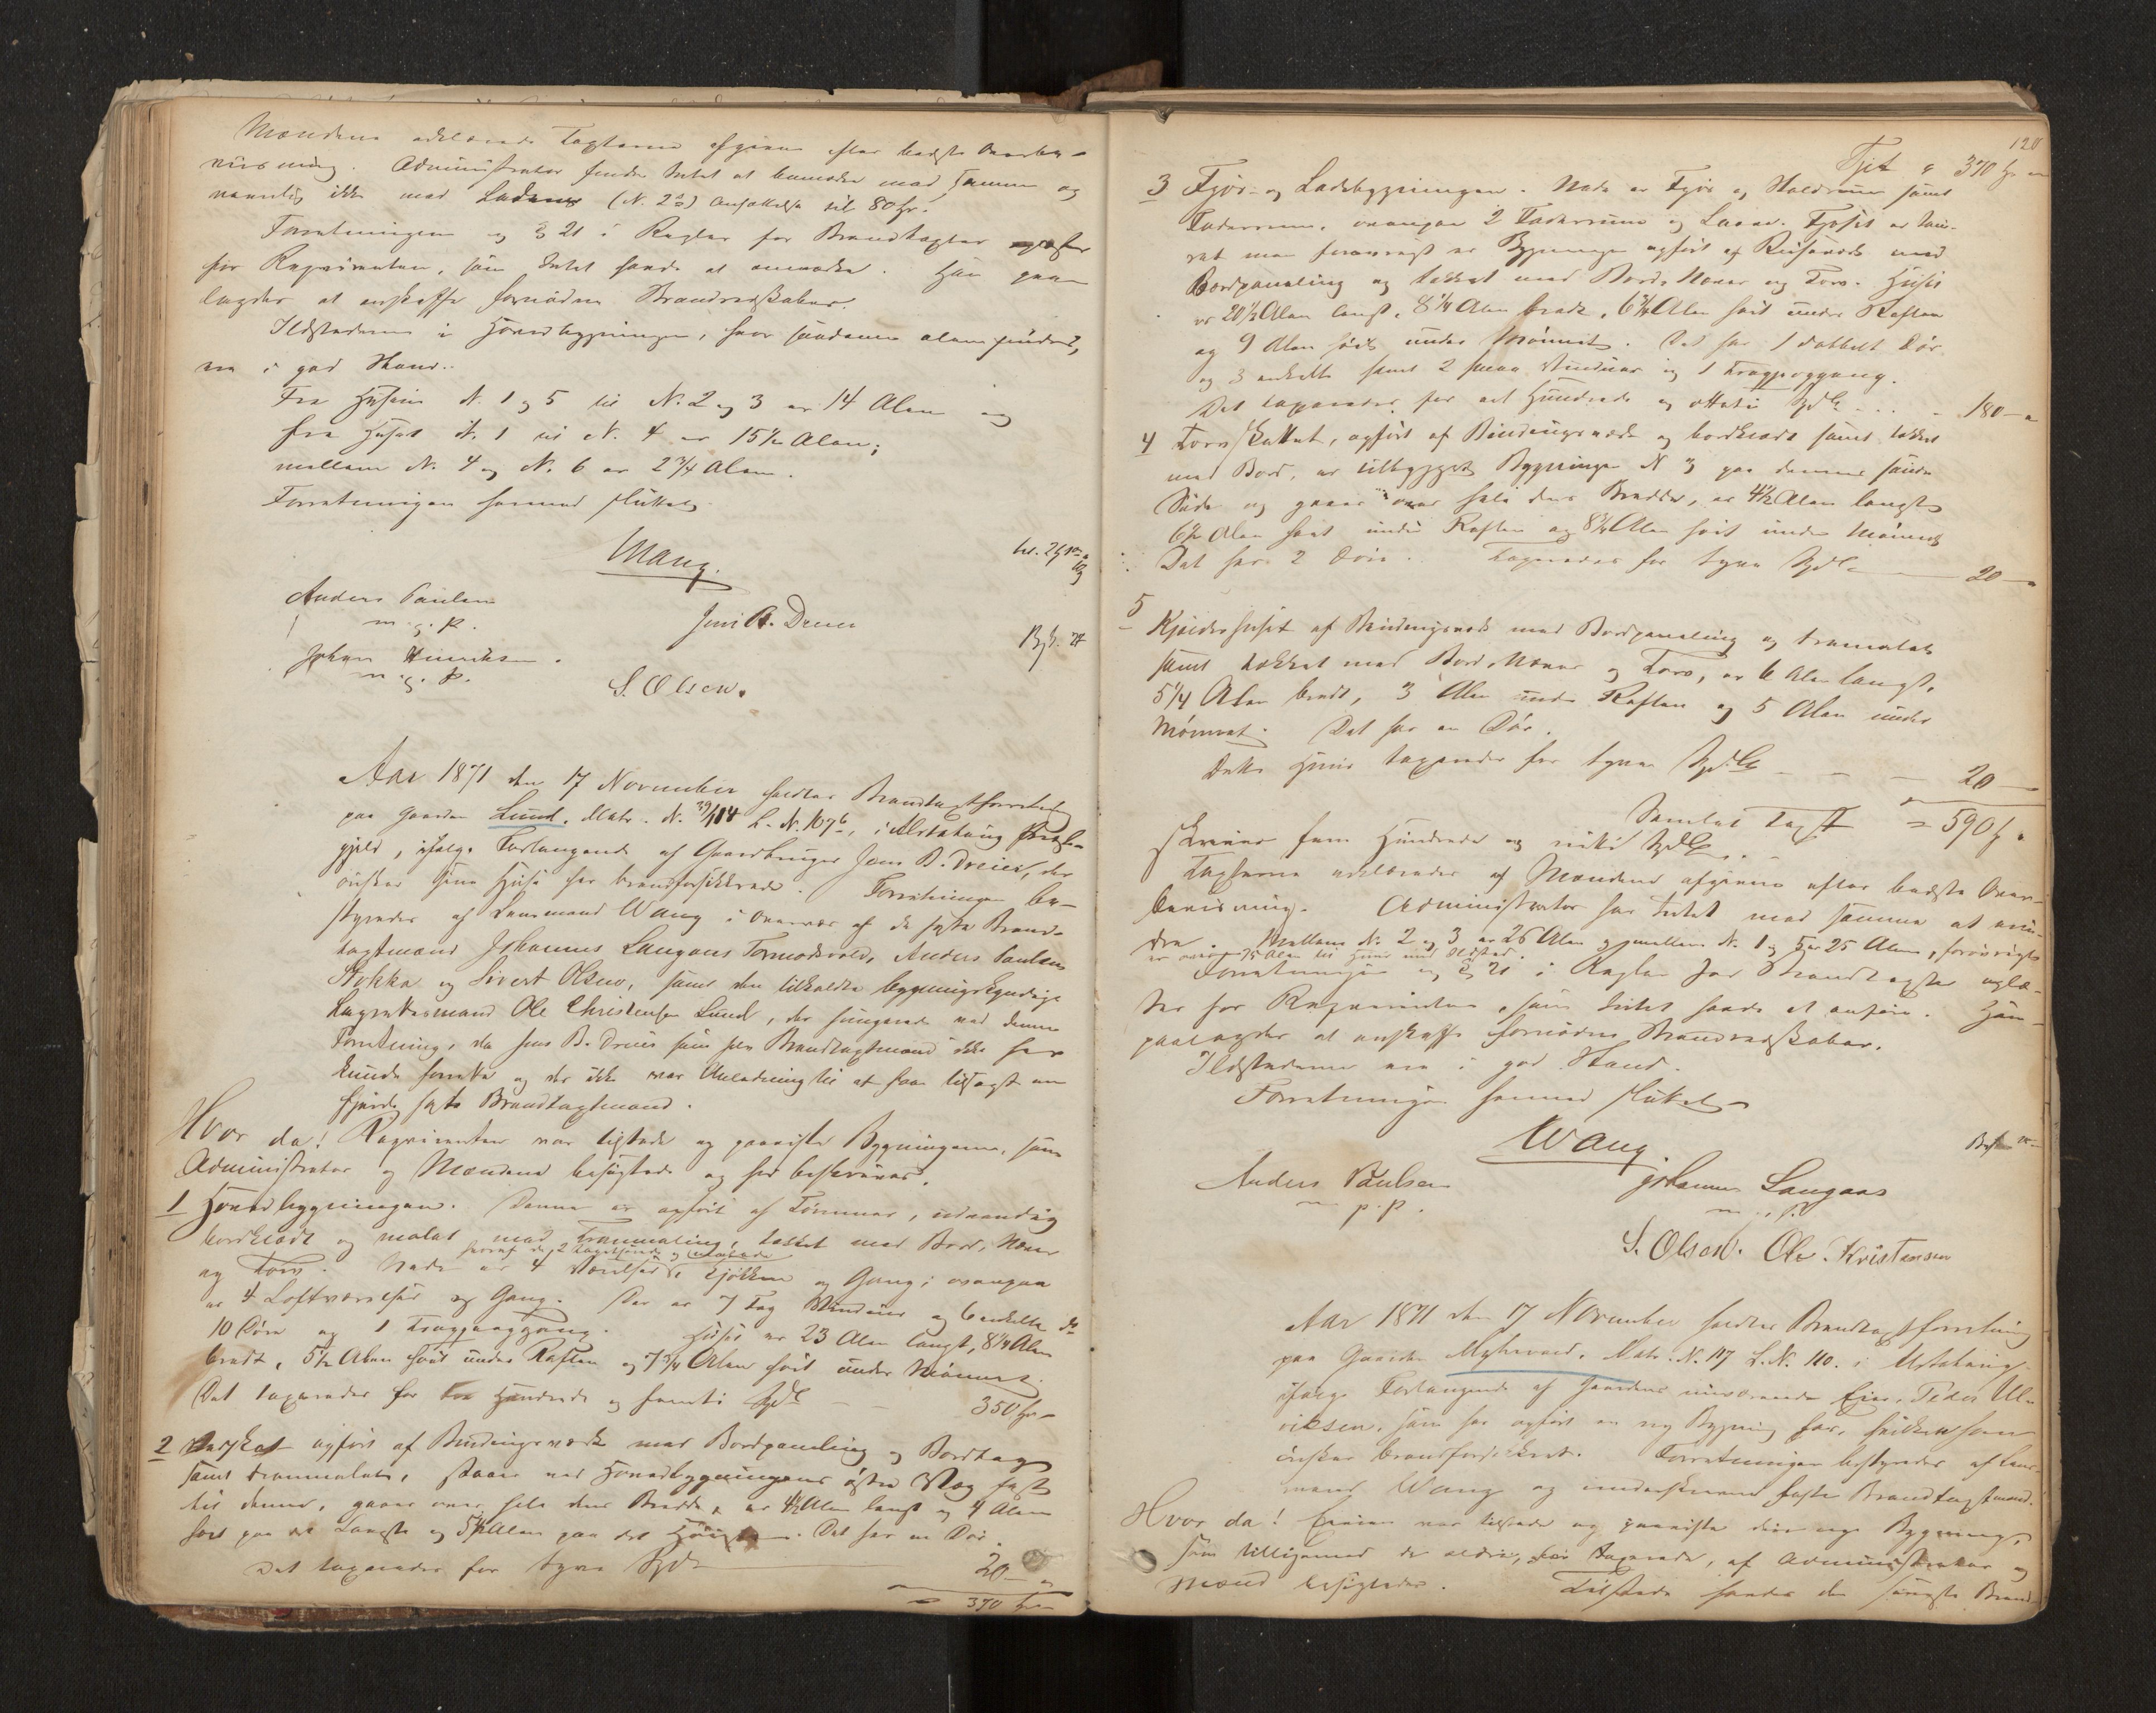 Mændene erklærede Taxterne afgivne efter bedste Overbe-
viisning. Administrator fandt Intet at bemærke mod samme og
navnlig ikke mod Ladens (N. 2) Ansættelse til 80 Sp.
Forretningen og § 21 i Regler for Brandtaxter oplæstes
for Reqvirenten, som Intet havde at anmærke. Han paa-
lagdes at anskaffe fornødne Brandredskaber.
Ildstederne i Hovedbygningen, hvor saadanne alene findes,
ere i god Stand.
Fra Husene N. 1 og 5 til N. 2 og 3 er 14 Alen og
fra Huset N. 1 til N. 4 er 15½ Alen;
mellem N. 4 og N. 6 er 2¾ Alen.
Forretningen hermed sluttet.
Wang.
Anders Paulsen
m. p. p.
Jens B. Dreier
Johan Henriksen
m. p. p.
S. Olsen.
Aar 1871 den 17 November holdtes Brandtaxtforretning
paa Gaarden Lund, Matr. N. 39/114 L. N. 107b, i Alstahoug Præste-
gjeld, ifølge Forlangende af Gaardbruger Jens B. Dreier, der
ønsker sine Huse her brandforsikkrede. Forretningen be-
styredes af Lensmand Wang i Overvær af de faste Brand-
taxtmænd Johannes Langaas Tormodsvold, Anders Paulsen
Stokka og Sivert Olsen, samt den tilkaldte bygningskyndige
Lagrettesmand Ole Christensen Lund, der fungerede ved denne
Forretning, da Jens B. Dreier som fast Brandtaxtmand ikke her
kunde forrette og der ikke var Anledning til at faae tilsagt en
fjerde fast Brandtaxtmand.
Hvor da! Reqvirenten var tilstede og paaviste Bygningerne, som
Administrator og Mændene besigtede og her beskrives.
1 Hovedbygningen. Denne er opført af Tømmer, udvendig
bordklædt og malet med Tranmaling, tækket med Bord, Næver
og Torv. Nede er 4 Værelser, Kjøkken og Gang; ovenpaa
er 4 Loftværelser og Gang. Der er 7 Fag Vinduer og 6 enkelte do
10 Døre og 1 Trappeopgang. Huset er 23 Alen langt, 8¼ Alen
bredt, 5½ Alen høit under Raften og 7¾ Alen høit under Mønnet.
Det taxeredes for tre Hundrede og femti Spdl — — 350 Sp. —
2 Vedskot opført af Bindingsværk med Bordpaneling og Bordtag
samt tranmalet, staar ved Hovedbygningens østre Væg fast
til denne, gaaer over hele dens Bredde, er 4½ Alen langt og 4 Alen
høit paa det Laveste og 5½ Alen paa det Høieste. Det har en Dør.
Det taxeredes for tyve Spdl — 20 —
= 370 Sp. —
120
Tjt = 370 Sp. —
3 Fjøs- og Ladebygningen. Nede er Fjøs og Staldrum samt
Foderrum, ovenpaa 2 Foderrum og Laave. Fjøset er tøm-
ret men forøvrigt er Bygningen opført af Reisværk med
Bordpaneling og tækket med Bord, Næver og Torv. Huset
er 20½ Alen langt, 8¼ Alen bredt, 6¼ Alen høit under Raften
og 9 Alen høit under Mønnet. Det har 1 dobbelt Dør
og 3 enkelte samt 2 smaa Vinduer og 1 Trappeopgang.
Det taxeredes for et Hundrede og otteti Spdl — 180 —
4 Torvskottet, opført af Bindingsværk og bordklædt samt tækket
med Bord, er tilbygget Bygningen N 3 paa dennes søndre
Side og gaaer over hele dens Bredde, er 4½ Alen langt
6½ Alen høit under Raften og 8¼ Alen høit under Mønnet
Det har 2 Døre. Taxeredes for tyve Spdl — 20 —
5 Kjelderhuset af Bindingsværk med Bordpaneling og tranmalet
samt tækket med Bord, Næver og Torv, er 6 Alen langt,
5¼ Alen bredt, 3 Alen under Raften og 5 Alen under
Mønnet. Det har en Dør.
Dette Huus taxeredes for tyve Spdl — — 20 —
Samlet Taxt = 590 Sp.
skriver fem Hundrede og niti Spdl.
Taxterne erklæredes af Mændene afgivne efter bedste Over-
beviisning. Administrator har Intet mod samme at erin-
dre. Mellem N. 2 og 3 er 26 Alen og mellem N. 1 og 5 er 25 Alen, forøvrigt
er over 75 Alen til Huus med Ildsted.
Forretningen og § 21 i Regler for Brandtaxter oplæ-
stes for Reqvirenten, som Intet havde at anføre. Han
paalagdes at anskaffe fornødne Brandredskaber.
Ildstederne ere i god Stand.
Forretningen hermed sluttet
Wang
Anders Paulsen
m. p. p.
Johannes Langaas
m. p. p.
S. Olsen. Ole Kristensen
Aar 1871 den 17 November holdtes Brandtaxtforretning
paa Gaarden Myhrvold, Matr. N. 117 L. N. 110. i Alstahoug
ifølge Forlangende af Gaardens nuværende Eier, Peder Ul-
riksen, som har opført en ny Bygning her, hvilken han
ønsker brandforsikkret. Forretningen bestyredes af Lens-
mand Wang og underskrevne faste Brandtaxtmænd.
Hvor da! Eieren var tilstede og paaviste den nye Bygning,
som tilligemed de ældre, før taxerede, af Administrator og
Mænd besigtedes. Tilstede havdes den seneste Brand-